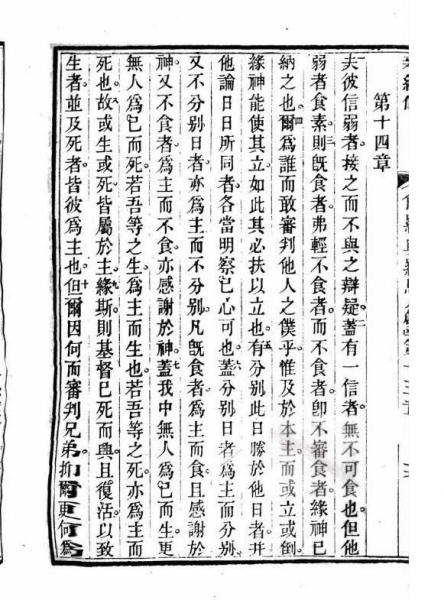 第十四章
夫彼信弱者。接之而不與之辯疑。二蓋有一信者。無不可食也。但他
弱者食素。三則既食者。弗輕不食者。而不食者。卽不審食者。緣神已
納之也。四爾爲誰而敢審判他人之僕乎。惟及於本主。而或立或倒。
緣神能使其立。如此其必扶以立也。五有分別此日勝於他日者。并
他論日日所同者。各當明察己心可也。六蓋分別日者。爲主而分別。
又不分別日者。亦爲主而不分別。凡既食者。爲主而食。且感謝於
神。又不食者。爲主而不食。亦感謝於神。七蓋我中無人爲己而生。更
無人爲己而死。若吾等之生。爲主而生也。若吾等之死。亦爲主而
死也。八故或生或死。皆屬於主。九緣斯則基督已死而興。且復活。以致
生者並及死者。皆彼爲主也。十但爾因何而審判兄弟。抑爾更何爲